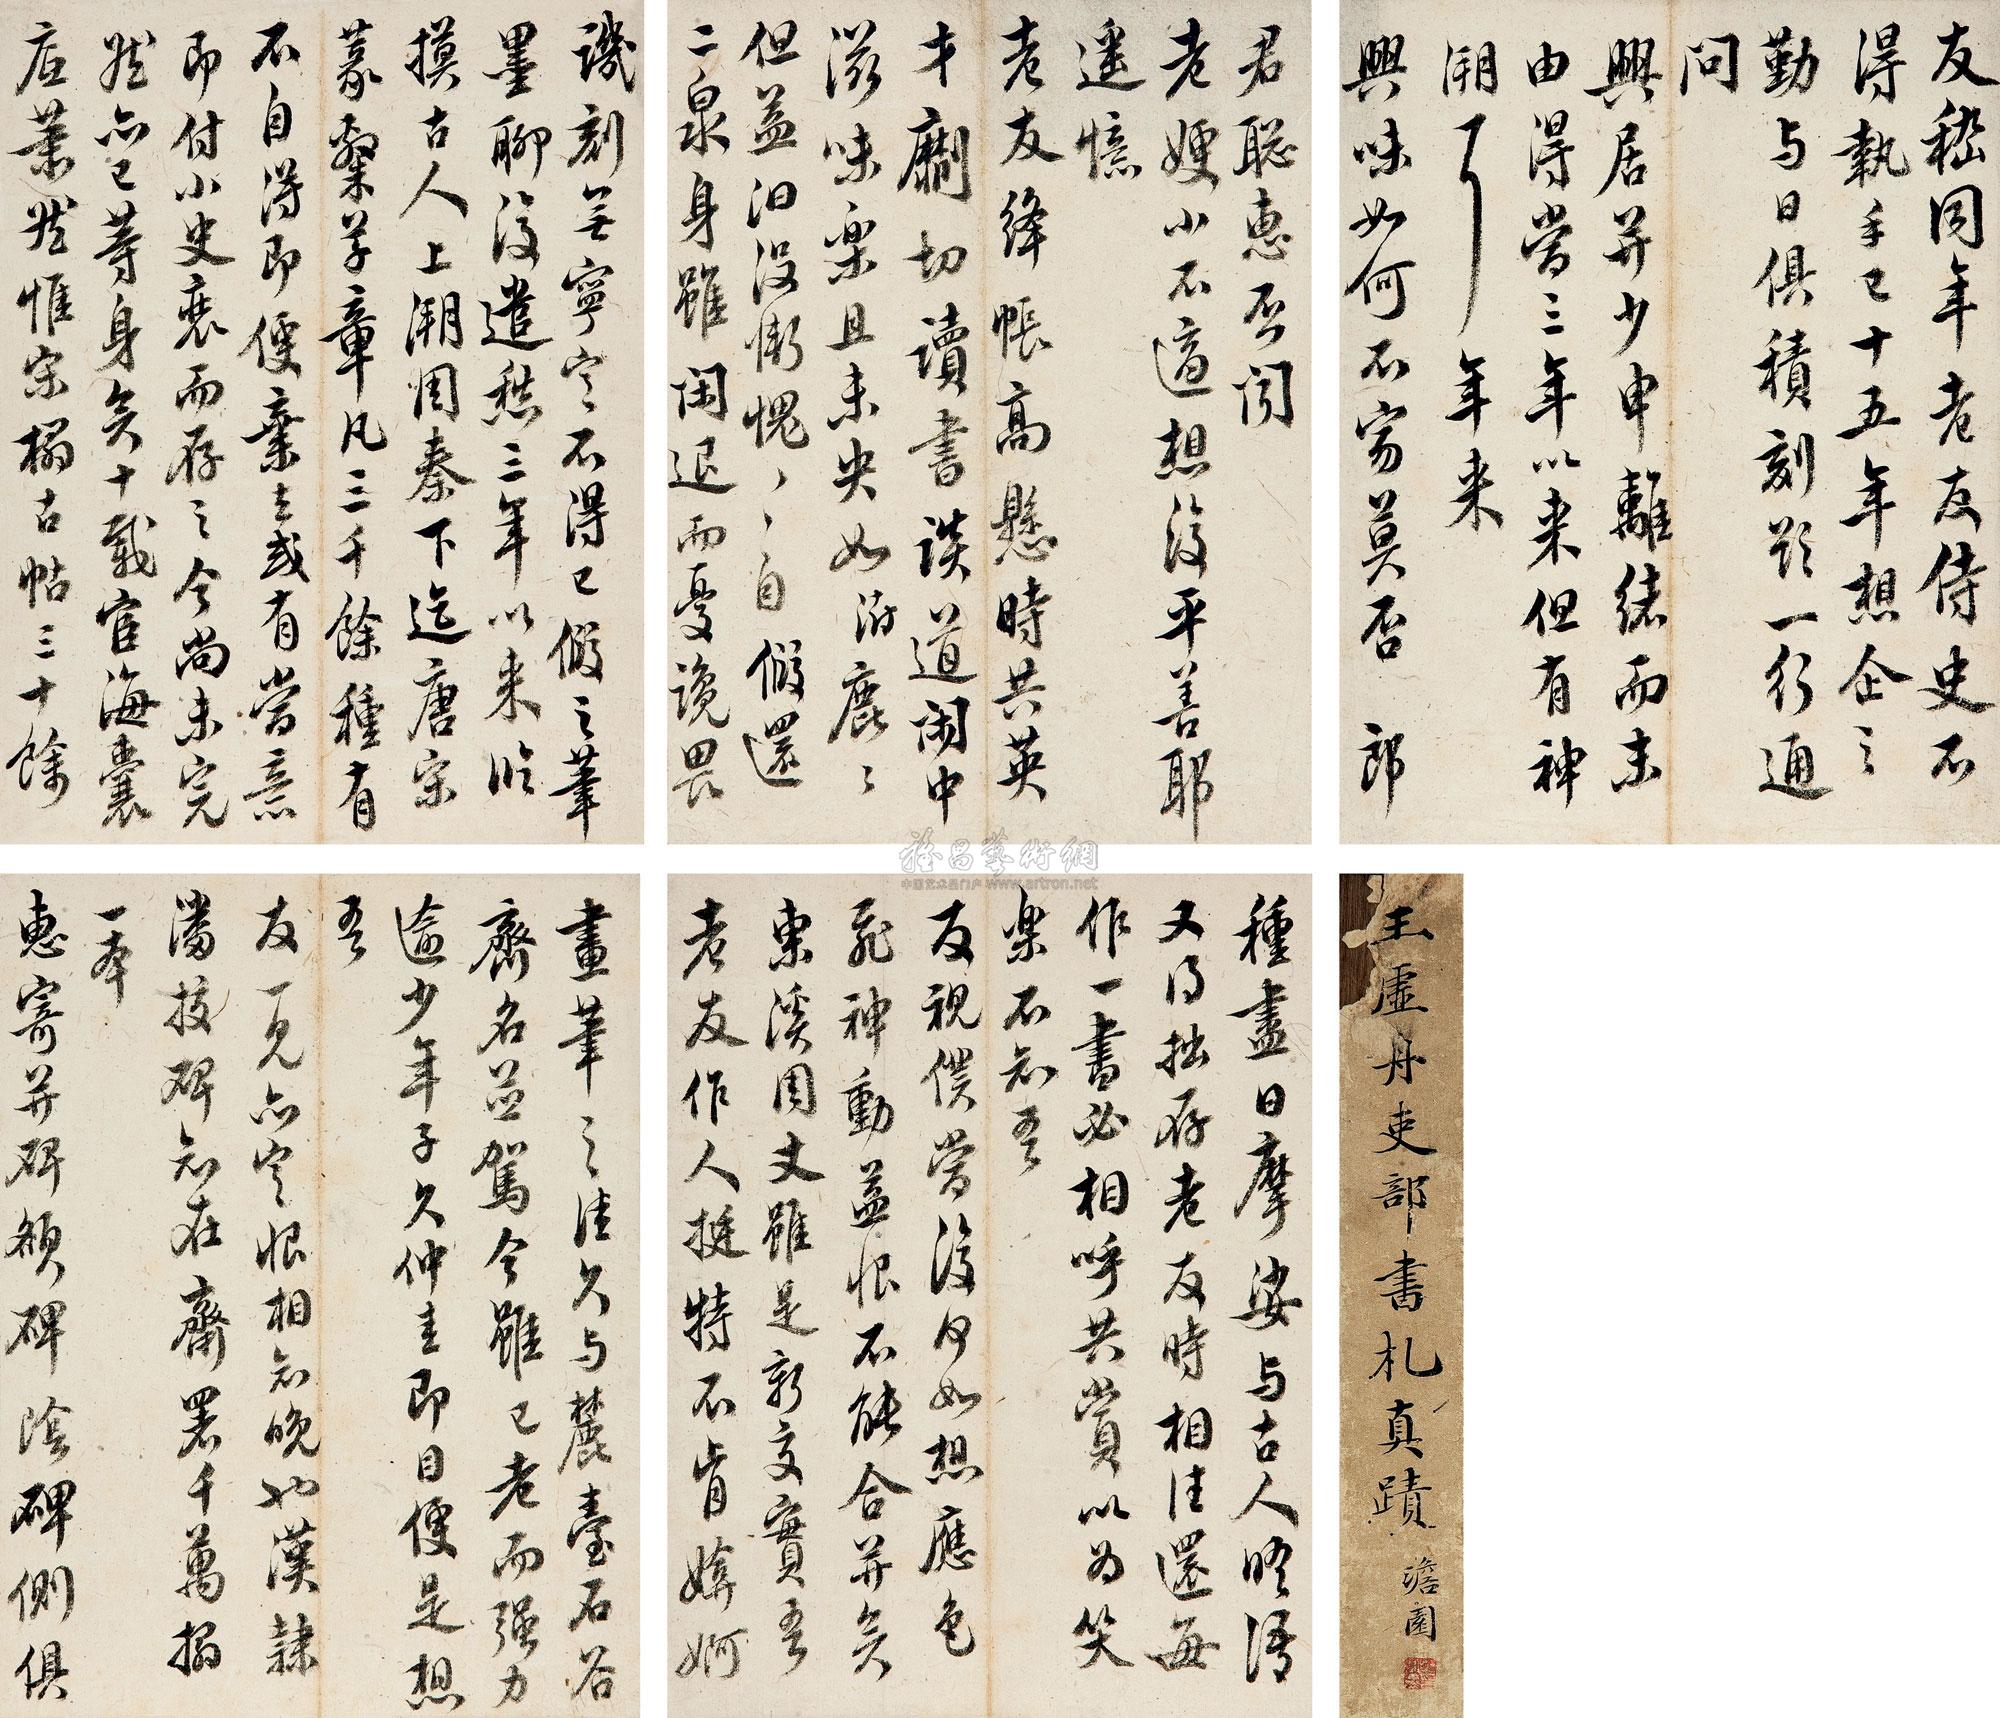 友嵇同年老友侍史不
得執手已十五年想企之
勤与日俱積刻欲一行通
問
興居并少申離緒而未
由得嘗三年以来但有神
溯了年来
興味如何不窘莫否郎
君聪惠否閤
老嫂小不適想復平善耶
遥憶
老友絳帳高懸時共英
才劘切讀書談道閑中
滋味樂且未央如游鹿之
但益汩没慚愧ヽヽ自假還
二泉身雖閑退而憂讒畏
譏刻無寧宀不得已假之筆
墨聊復遣愁三年以来臨
摸古人上溯周秦下迄唐宋
篆隸草章凡三千餘種有
不自得即便棄去或有當意
即付小史裹而存之今尚未完
然亦已等身矣十載宦海囊
箧蕭然惟宋榻古帖三十餘
種盡日摩娑与古人晤語
又得拙存老友時相往還每
作一書必相呼共賞以為笑
樂不知吾
友視僕嘗復何如想應色
飛神動益恨不能合并矣
東溪周丈雖是新交實吾
老友作人挺特不肯媕婀
畫筆之佳久与麓臺石谷
齊名並駕今雖已老而强力
逾少年子久仲圭即目便是想
吾
友一見亦定恨相知晚也漢隸
潘校碑知在齋署千萬搨
一本
惠寄并碑額碑陰碑側俱
王虚舟吏部書札真蹟
澹園
雅昌藝術網
中国艺术品门户 www.artron.net